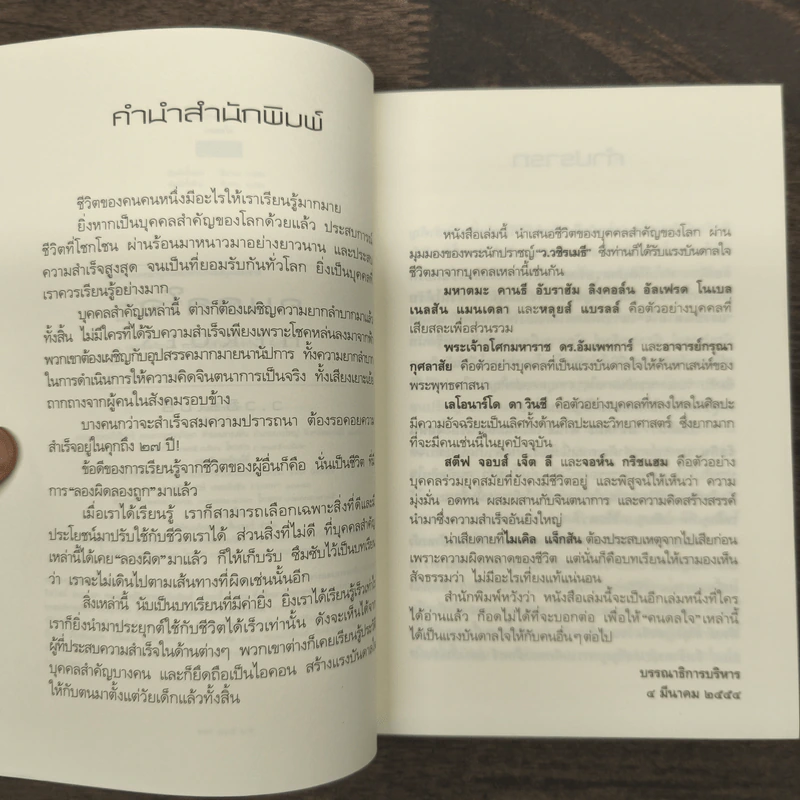 คำนำสำนักพิมพ์
ชีวิตของคนคนหนึ่งมีอะไรให้เราเรียนรู้มากมาย
ยิ่งหากเป็นบุคคลสำคัญของโลกด้วยแล้ว ประสบการณ์
ชีวิตที่โชกโชน ผ่านร้อนมาหนาวมาอย่างยาวนาน และประสบ
ความสำเร็จสูงสุด จนเป็นที่ยอมรับกันทั่วโลก ยิ่งเป็นบุคคลที่
เราควรเรียนรู้อย่างมาก
บุคคลสำคัญเหล่านี้ ต่างก็ต้องเผชิญความยากลำบากมาแล้ว
ทั้งสิ้น ไม่มีใครที่ได้รับความสำเร็จเพียงเพราะโชคหล่นลงมาจากฟ้า
พวกเขาต้องเผชิญกับอุปสรรคมากมายนานัปการ ทั้งความยากลำบาก
ในการดำเนินการให้ความคิดจินตนาการเป็นจริง ทั้งเสียงเยาะเย้ย
ถากถางจากผู้คนในสังคมรอบข้าง
บางคนกว่าจะสำเร็จสมความปรารถนา ต้องรอคอยความ
สำเร็จอยู่ในคุกถึง ๒๗ ปี!
ข้อดีของการเรียนรู้จากชีวิตของผู้อื่นก็คือ นั่นเป็นชีวิต ที่มี
การ“ลองผิดลองถูก”มาแล้ว
เมื่อเราได้เรียนรู้ เราก็สามารถเลือกเฉพาะสิ่งที่ดีและมี
ประโยชน์มาปรับใช้กับชีวิตเราได้ ส่วนสิ่งที่ไม่ดี ที่บุคคลสำคัญ
เหล่านี้ได้เคย“ลองผิด”มาแล้ว ก็ให้เก็บรับ ซึมซับไว้เป็นบทเรียน
ว่า เราจะไม่เดินไปตามเส้นทางที่ผิดเช่นนั้นอีก
สิ่งเหล่านี้ นับเป็นบทเรียนที่มีค่ายิ่ง ยิ่งเราได้เรียนรู้เร็วเท่าไร
เราก็ยิ่งนำมาประยุกต์ใช้กับชีวิตได้เร็วเท่านั้น ดังจะเห็นได้จาก
ผู้ที่ประสบความสำเร็จในด้านต่างๆ พวกเขาต่างก็เคยเรียนรู้ประวัติ
บุคคลสำคัญบางคน และก็ยึดถือเป็นไอคอน สร้างแรงบันดาลใจ
ให้กับตนมาตั้งแต่วัยเด็กแล้วทั้งสิ้น
หนังสือเล่มนี้ นำเสนอชีวิตของบุคคลสำคัญของโลก ผ่าน
มุมมองของพระนักปราชญ์“ว.วชิรเมธี” ซึ่งท่านก็ได้รับแรงบันดาลใจ
ชีวิตมาจากบุคคลเหล่านี้เช่นกัน
มหาตมะ คานธี อับราฮัม ลิงคอล์น อัลเฟรด โนเบล
เนลสัน แมนเดลา และหลุยส์ แบรลล์ คือตัวอย่างบุคคลที่
เสียสละเพื่อส่วนรวม
พระเจ้าอโศกมหาราช ดร.อัมเพทการ์ และอาจารย์กรุณา
กุศลาสัย คือตัวอย่างบุคคลที่เป็นแรงบันดาลใจให้ค้นหาเสน่ห์ของ
พระพุทธศาสนา
เลโอนาร์โด ดา วินชี คือตัวอย่างบุคคลที่หลงใหลในศิลปะ
มีความอัจฉริยะเป็นเลิศทั้งด้านศิลปะและวิทยาศาสตร์ ซึ่งยากมาก
ที่จะมีคนเช่นนี้ในยุคปัจจุบัน
สตีฟ จอบส์ เจ็ต ลี และจอห์น กริชแฮม คือตัวอย่าง
บุคคลร่วมยุคสมัยที่ยังคงมีชีวิตอยู่ และพิสูจน์ให้เห็นว่า ความ
มุ่งมั่น อดทน ผสมผสานกับจินตนาการ และความคิดสร้างสรรค์
นำมาซึ่งความสำเร็จอันยิ่งใหญ่
น่าเสียดายที่ไมเคิล แจ็กสัน ต้องประสบเหตุจากไปเสียก่อน
เพราะความผิดพลาดของชีวิต แต่นั่นก็คือบทเรียนให้เรามองเห็น
สัจธรรมว่า ไม่มีอะไรเที่ยงแท้แน่นอน
สำนักพิมพ์หวังว่า หนังสือเล่มนี้จะเป็นอีกเล่มหนึ่งที่ใคร
ได้อ่านแล้ว ก็อดไม่ได้ที่จะบอกต่อ เพื่อให้ “คนดลใจ” เหล่านี้
ได้เป็นแรงบันดาลใจให้กับคนอื่นๆ ต่อไป
บรรณาธิการบริหาร
๔ มีนาคม ๒๕๕๔